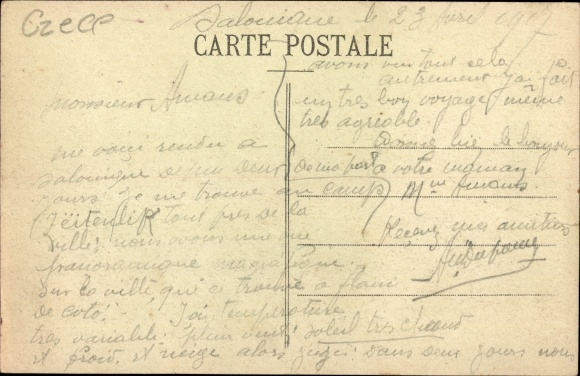 Grece
Salonique le 23 Avril 191
CARTE POSTALE
Monsieur Amans
me voici rendu a
Salonique depuis deux
jours je me trouve au camp
Zeitenlik tout pres de la
ville; nous avons une vue
panoramique magnifique
sur la ville qui ce trouve a flanc
de coto. Ici temperature
tres variable: pluie vent soleil tres chaud
et froid, et neige alors jugez dans deux jours nous
avons vu tout cela
autrement j'ai fait
un tres bon voyage même
tres agreable.
Donne bien le bonjour
de ma part a votre maman
Mme Amans
Recevez mes amitiés